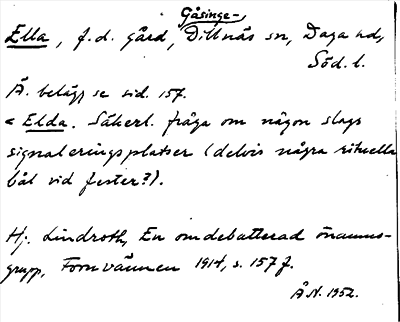 Gåsinge-
Ella, f.d. gård, Dillnäs sn, Daga hd,
Söd. l.
Ä. belägg se sid. 157.
< Elda. Säkerl. fråga om någon slags
signaleringsplatser (delvis några rituella
bål vid fester?).
Hj. Lindroth, En omdebatterad önamns-
grupp, Fornvännen 1914, s. 157 f.
Å.N. 1952.